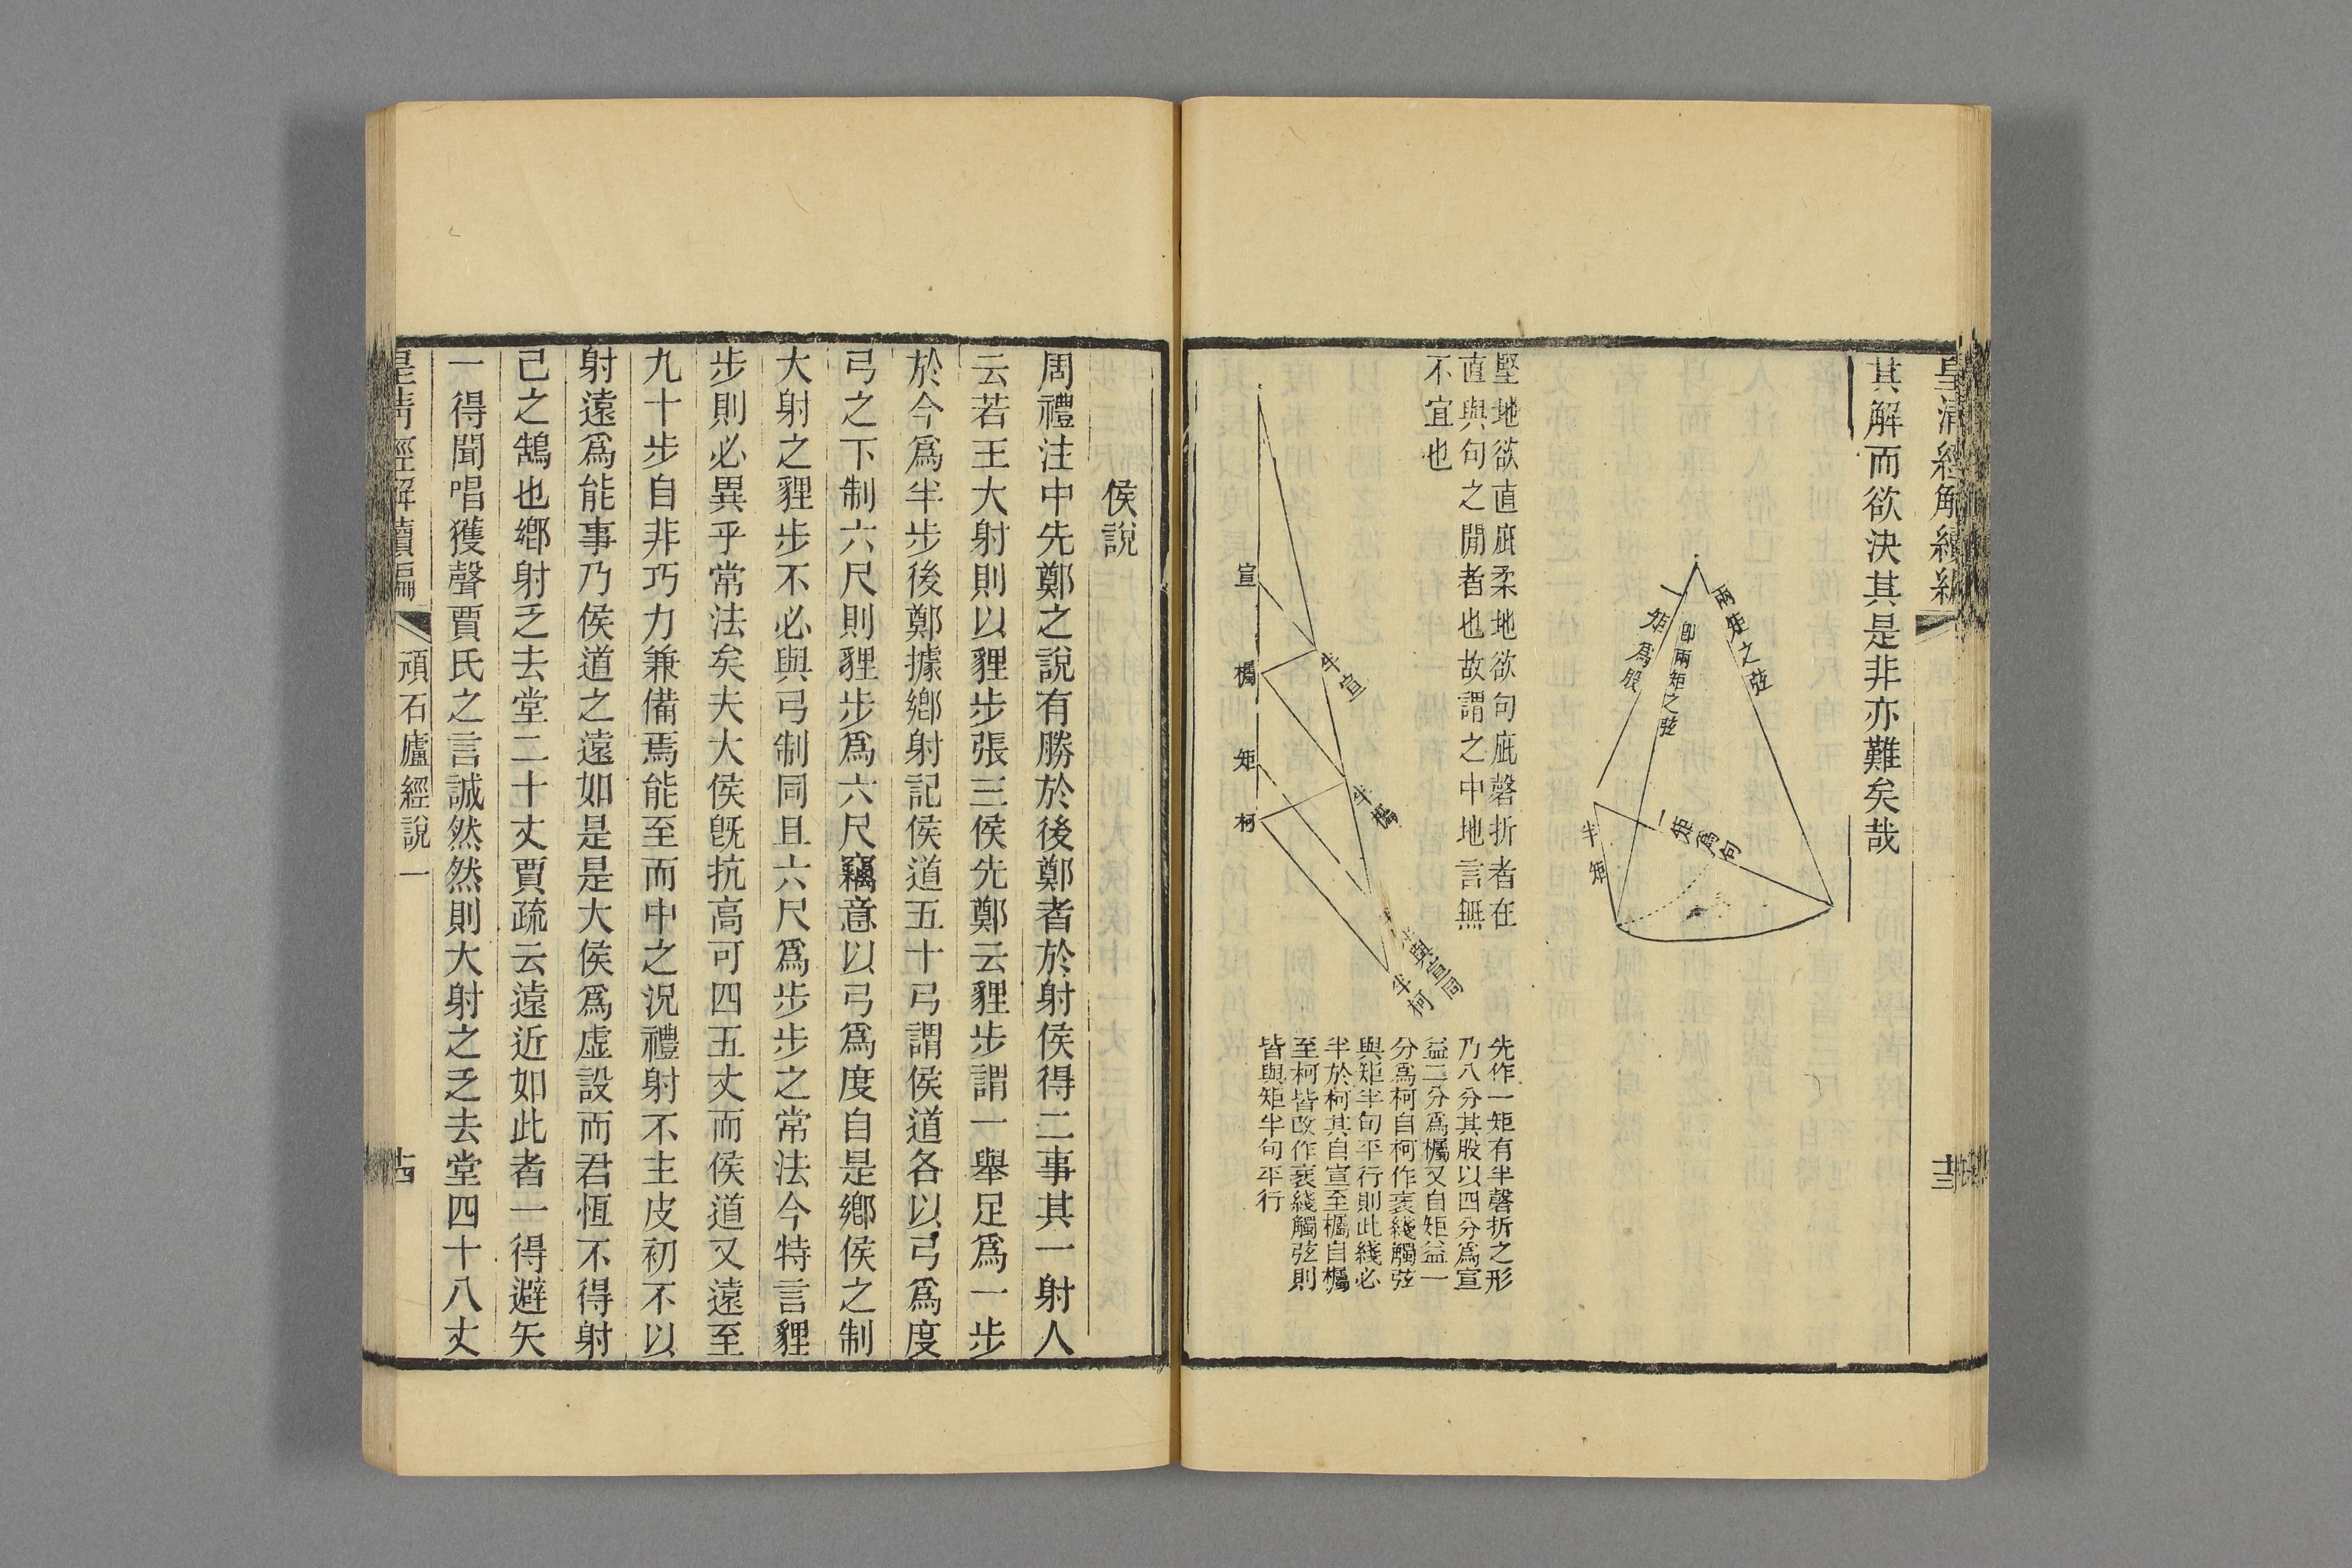 皇清經解續編
十三
其解而欲決其是非亦難矣哉
兩矩之弦
即兩矩之弦
一矩為股
一矩為句
半矩
堅地欲直庛柔地欲句庛磬折者在
直與句之閒者也故謂之中地言無
不宜也
宣
欘
矩
柯
半宣
半欘
與宣同
半柯
先作一矩有半磬折之形
乃八分其股以四分為宣
益二分為欘又自矩益一
分為柯自柯作衺綫觸弦
與矩半句平行則此綫必
半於柯其自宣至欘自欘
至柯皆改作衺綫觸弦則
皆與矩半句平行
侯說
周禮注中先鄭之說有勝於後鄭者於射侯得二事其一射人
云若王大射則以貍步張三侯先鄭云貍步謂一舉足爲一步
於今爲半步後鄭據鄉射記侯道五十弓謂侯道各以弓爲度
弓之下制六尺則貍步爲六尺竊意以弓爲度自是鄉侯之制
大射之貍步不必與弓制同且六尺爲步步之常法今特言貍
步則必異乎常法矣夫大侯既抗高可四五丈而侯道又遠至
九十步自非巧力兼備焉能至而中之況禮射不主皮初不以
射遠爲能事乃侯道之遠如是是大侯爲虛設而君恆不得射
己之鵠也鄉射乏去堂二十丈賈疏云遠近如此者一得避矢
一得聞唱獲聲賈氏之言誠然然則大射之乏去堂四十八丈
皇清經解續編
頑石廬經說一
十四